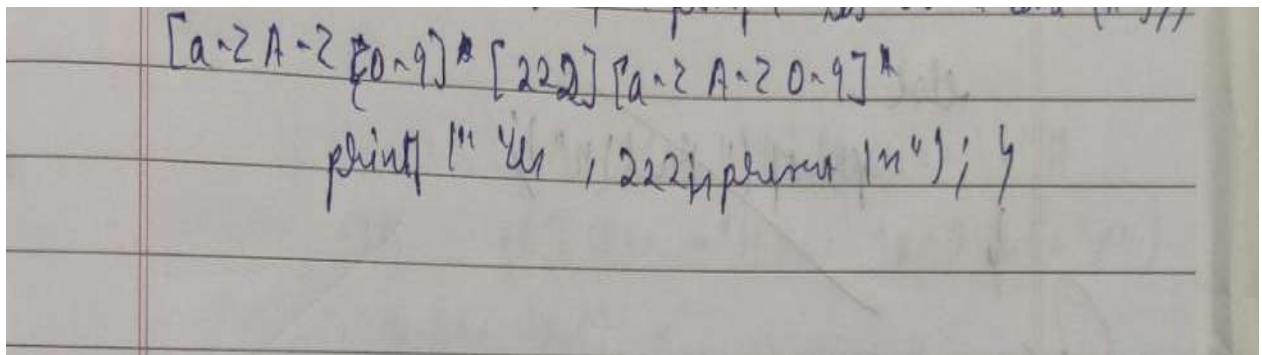 [a-z A-Z 0-9]* [222] [a-z A-Z 0-9]*
{ printf ("Yes, 222 is present \n"); }